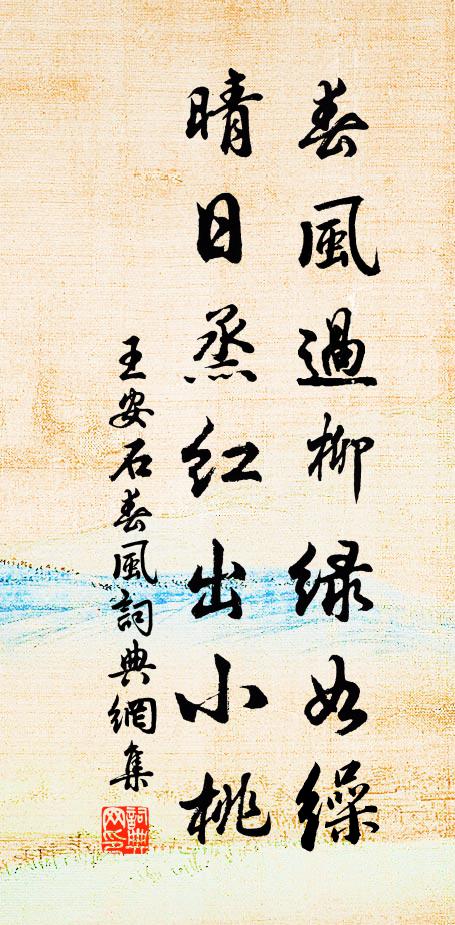 春風過柳綠如繰
晴日蒸紅出小桃
王安石春風詞典網集
詞典網印